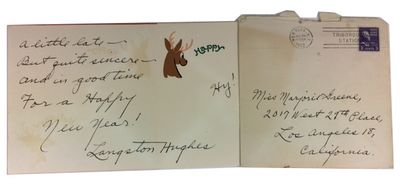 A little late —
But quite sincere —
and in good time
For a Happy
New Year!
Langston Hughes
HAPPY
Hy!
TRIBORO
STATION
Miss Marjorie Greene,
2017 West 29th Place,
Los Angeles 18,
California.